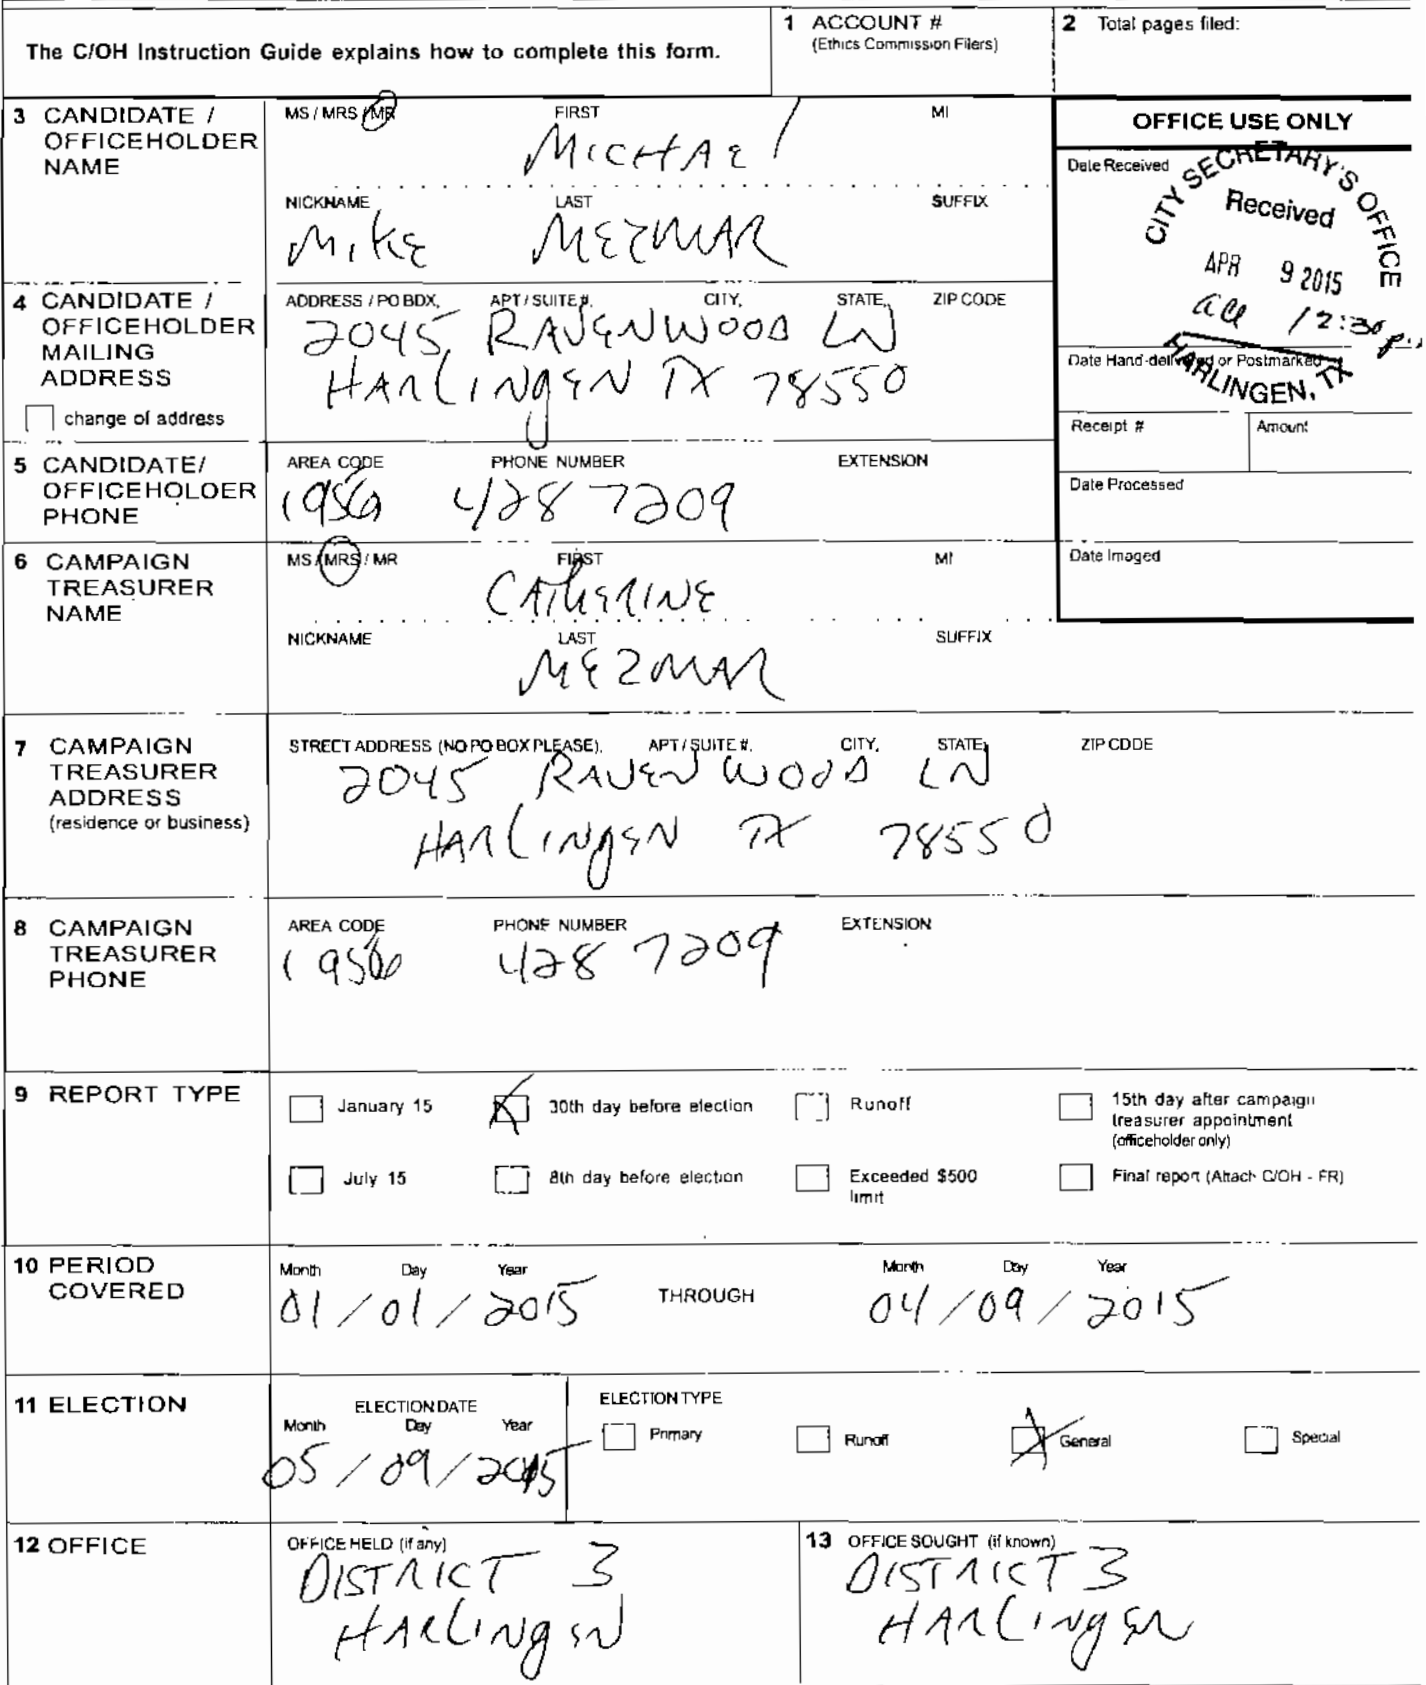 The C/OH Instruction Guide explains how to complete this form.
1 ACCOUNT #
(Ethics Commission Filers)
2 Total pages filed:
3 CANDIDATE /
OFFICEHOLDER
NAME
MS / MRS / MR
FIRST
MI
MICHAEl
NICKNAME
LAST
SUFFIX
MIKE
MEZMAR
OFFICE USE ONLY
Date Received
CITY SECRETARY'S OFFICE
Received
APR 9 2015
12:30 p.
HARLINGEN, TX
Date Hand-delivered or Postmarked
Receipt #
Amount
Date Processed
Date Imaged
4 CANDIDATE /
OFFICEHOLDER
MAILING
ADDRESS
change of address
ADDRESS / PO BOX, APT / SUITE #, CITY, STATE, ZIP CODE
2045 RAVENWOOD LN
HARLINGEN TX 78550
5 CANDIDATE/
OFFICEHOLDER
PHONE
AREA CODE
PHONE NUMBER
EXTENSION
(956) 428 7209
6 CAMPAIGN
TREASURER
NAME
MS / MRS / MR
FIRST
MI
CATHERINE
NICKNAME
LAST
SUFFIX
MEZMAR
7 CAMPAIGN
TREASURER
ADDRESS
(residence or business)
STREET ADDRESS (NO PO BOX PLEASE), APT / SUITE #, CITY, STATE, ZIP CODE
2045 RAVENWOOD LN
HARLINGEN TX 78550
8 CAMPAIGN
TREASURER
PHONE
AREA CODE
PHONE NUMBER
EXTENSION
(956 428 7209
9 REPORT TYPE
January 15
30th day before election
Runoff
15th day after campaign
treasurer appointment
(officeholder only)
July 15
8th day before election
Exceeded $500
limit
Final report (Attach C/OH - FR)
10 PERIOD
COVERED
Month Day Year
01 / 01 / 2015
THROUGH
Month Day Year
04 / 09 / 2015
11 ELECTION
ELECTION DATE
Month Day Year
05 / 09 / 2015
ELECTION TYPE
Primary
Runoff
General
Special
12 OFFICE
OFFICE HELD (if any)
DISTRICT 3
HARLINGEN
13 OFFICE SOUGHT (if known)
DISTRICT 3
HARLINGEN